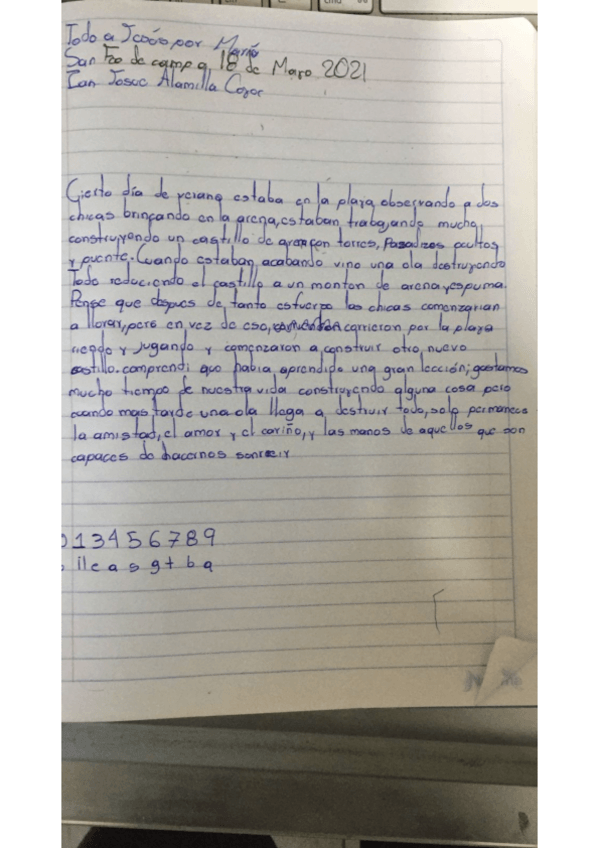 Todo a Jesús por María
San Fco de camp a 18 de Marzo 2021
Ian Josue Alamilla
Cierto día de verano estaba en la playa observando a dos
chicas brincando en la arena, estaban trabajando mucho
construyendo un castillo de arena, con torres, Pasadizos ocultos
y puente. Cuando estaban acabando vino una ola destruyendo
Todo reduciendo el castillo a un monton de arena y espuma.
Pense que despues de tanto esfuerzo las chicas comenzarian
a llorar, pero en vez de eso, corrieron por la playa
riendo y jugando y comenzaron a construir otro nuevo
castillo. comprendi que habia aprendido una gran lección; gastamos
mucho tiempo de nuestra vida construyendo alguna cosa pero
cuando mas tarde una ola llega a destruir todo, solo permanece
la amistad, el amor y el cariño, y las manos de aquellos que son
capaces de hacernos sonreir
013456789
ileasgtbq